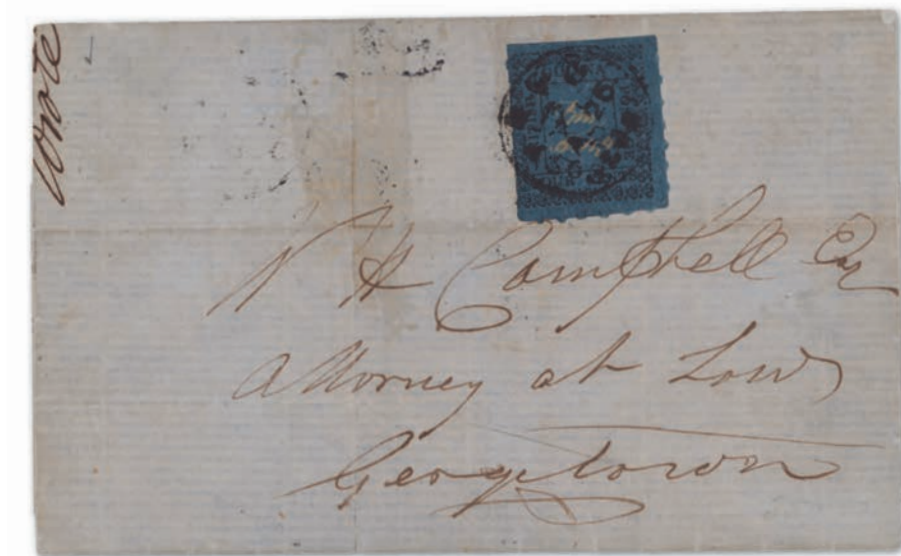 Wrote
N H Campbell Esq
Attorney at Law
Georgetown